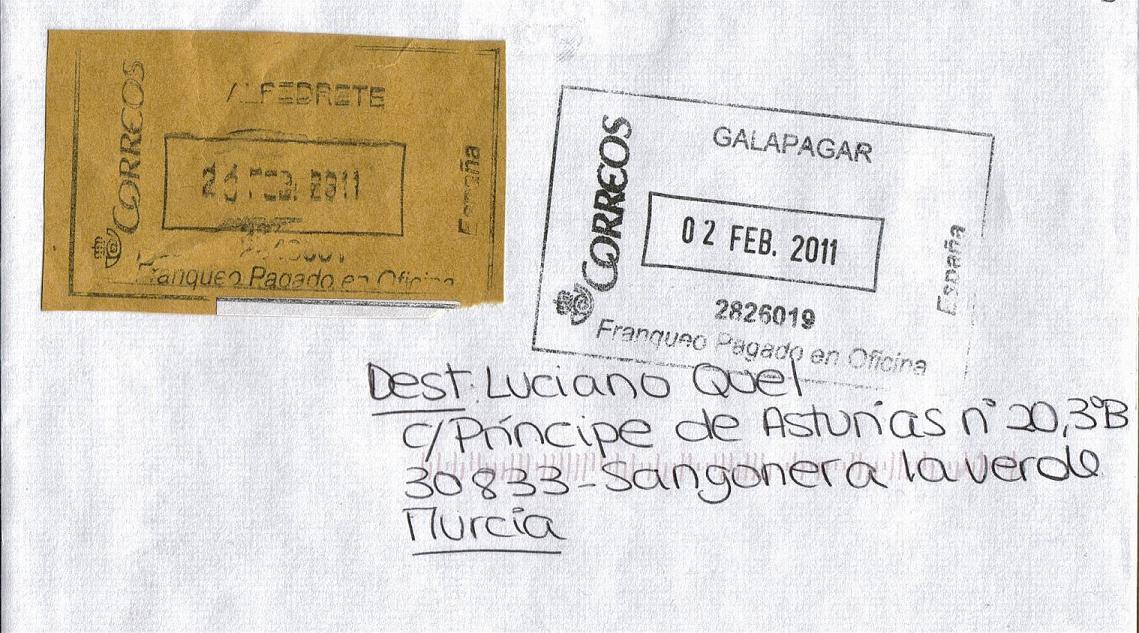 CORREOS
ALPEDRETE
FEB. 2011
España
Franqueo Pagado en Oficina
CORREOS
GALAPAGAR
02 FEB. 2011
España
2826019
Franqueo Pagado en Oficina
Dest: Luciano Quel
c/Príncipe de Asturias nº 20,3ºB
30833-Sangonera la verde
Murcia